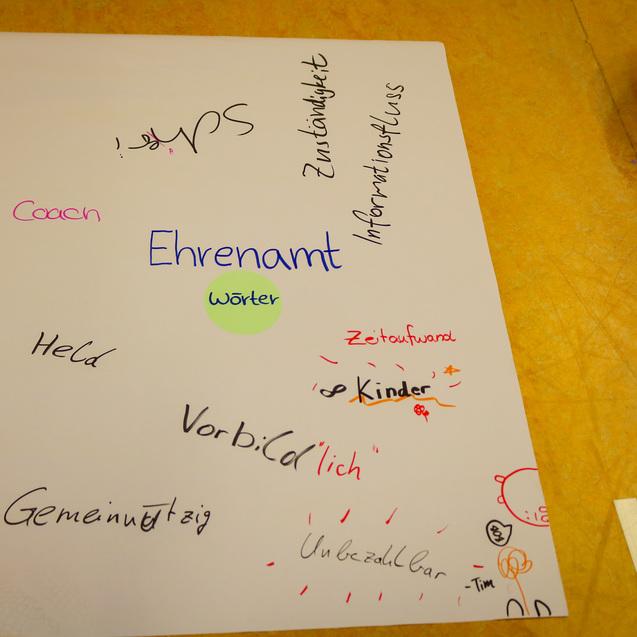 Zuständigkeit
Informationsfluss
Coach
Ehrenamt
Wörter
Held
Zeitaufwand
∞ Kinder
Vorbild "lich"
Gemeinnützig
Unbezahlbar
-Tim